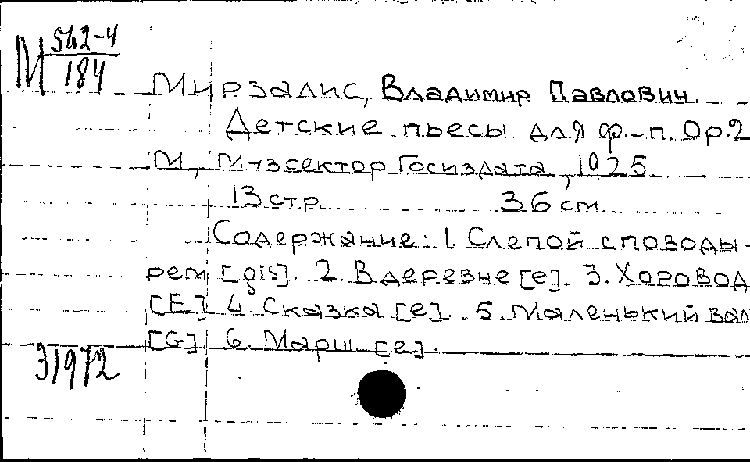 М 542-4
184
Мирзалис, Владимир Павлович
Детские пьесы для ф.-п. Ор.2
М, Музсектор Госиздата, 1925
13 стр 36 см
Содержание: 1. Слепой с поводы-
рем [gis]. 2. В деревне [e]. 3. Хоровод
[E] 4. Сказка [e]. 5. Маленький вал
[G] 6. Марш [e].
31972